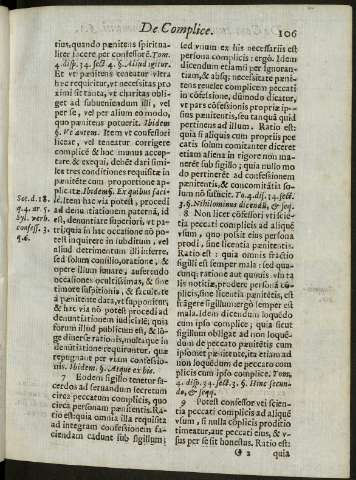 De Complice. 106
tius, quando pænitens spiritua-
liter iacere per confessorē. Tom.
4. disp. 34. sect 4. §. Aliud igitur.
Et vt pænitens teneatur vltra
hęc requiritur, vt necessitas pro
ximi sit tanta, vt charitas obli-
get ad subueniendum illi, vel
per se, vel per alium eo modo,
quo pænitens potuerit. Ibidem
§. Vt autem. Item vt confessori
liceat, vel teneatur corrigere
complicē & hoc munus accep-
tare, & exequi, debēt dari simi-
les tres conditiones requisitæ in
pænitēte cum proportione ap-
plicatæ. Ibidem §. Ex quibus faci-
lè. Item hac via potest, procedi
ad denuntiationem paternā, id
est, denuntiare superiori, vt pa-
tri; quia in hac occasione nō po-
test inquirere in subditum, vel
aliud detrimentum illi inferre,
sed solum consilio, oratione, &
opere illum iuuare, auferendo
occasiones occultissimas, & sine
timore suspitionis, & facultate
à pænitente data, vt supponitur;
& hac via nō potest procedi ad
denuntiationem iudicialē; quia
forum illud publicum est, & lō-
gè diuersæ rationis, multaque in
denuntiatione requiruntur, quæ
repugnant per viam confessio-
nis. Ibidem §. Atque ex his.
7 Eodem sigillo tenetur sa-
cerdos ad seruandum secretum
circa peccatum complicis, quo
circa personam pænitentis. Ra-
tio est: quia omnia illa requisita
ad integram confessionem fa-
ciendam cadunt sub sigillum;
Sot. d. 18.
q. 4. ar. 5.
Syl. verb.
confess. 3.
q. 6.
sed vnum ex his necessariis est
persona complicis: ergo. Idem
dicendum etiamsi per ignoran-
tiam, & absq; necessitate pæni-
tens reuelet complicem peccati
in cōfessione, dūmodo dicatur,
vt pars cōfessionis propriæ ip-
sus pænitentis, seu tanquā quid
pertinens ad illum. Ratio est:
quia si aliquis cum propriis pec-
catis solum comitanter diceret
etiam aliena in rigore non ma-
nerēt sub sigillo; quia nullo mo
do pertinerēt ad confessionem
pænitentis, & concomitātia so-
lum nō sufficit. To. 4. dis. 34. sect.
3. §. Nihilominus dicendū, & seq.
8 Non licet cōfessori vti scie-
tia peccati complicis ad aliquē
vsum, quo possit eius persona
prodi, sine licentia pænitentis.
Ratio est: quia omnis fractio
sigilli est semper mala: sed quæ-
cunq; ratione aut quouis vsu ta
lis notitiæ, prodere personā cō-
plicis, sine licentia pænitētis, est
frāgere sigillum: ergò semper est
mala. Idem dicendum loquēdo
cum ipso complice; quia sicut
sigillum obligat ad non loquē-
dum de peccato pænitētis cum
ipsomet pænitente, ita etiam ad
non loquēdum de peccato com
plicis cum ipso complice. Tom.
4. disp. 34. sect. 3. §. Hinc secun-
do, & seqq.
9 Potest confessor vti scien-
tia peccati complicis ad aliquē
vsum, si nulla cōplicis proditio
timeatur, aut peccati eius, & v-
sus per se sit honestus. Ratio est:
O 2 quia